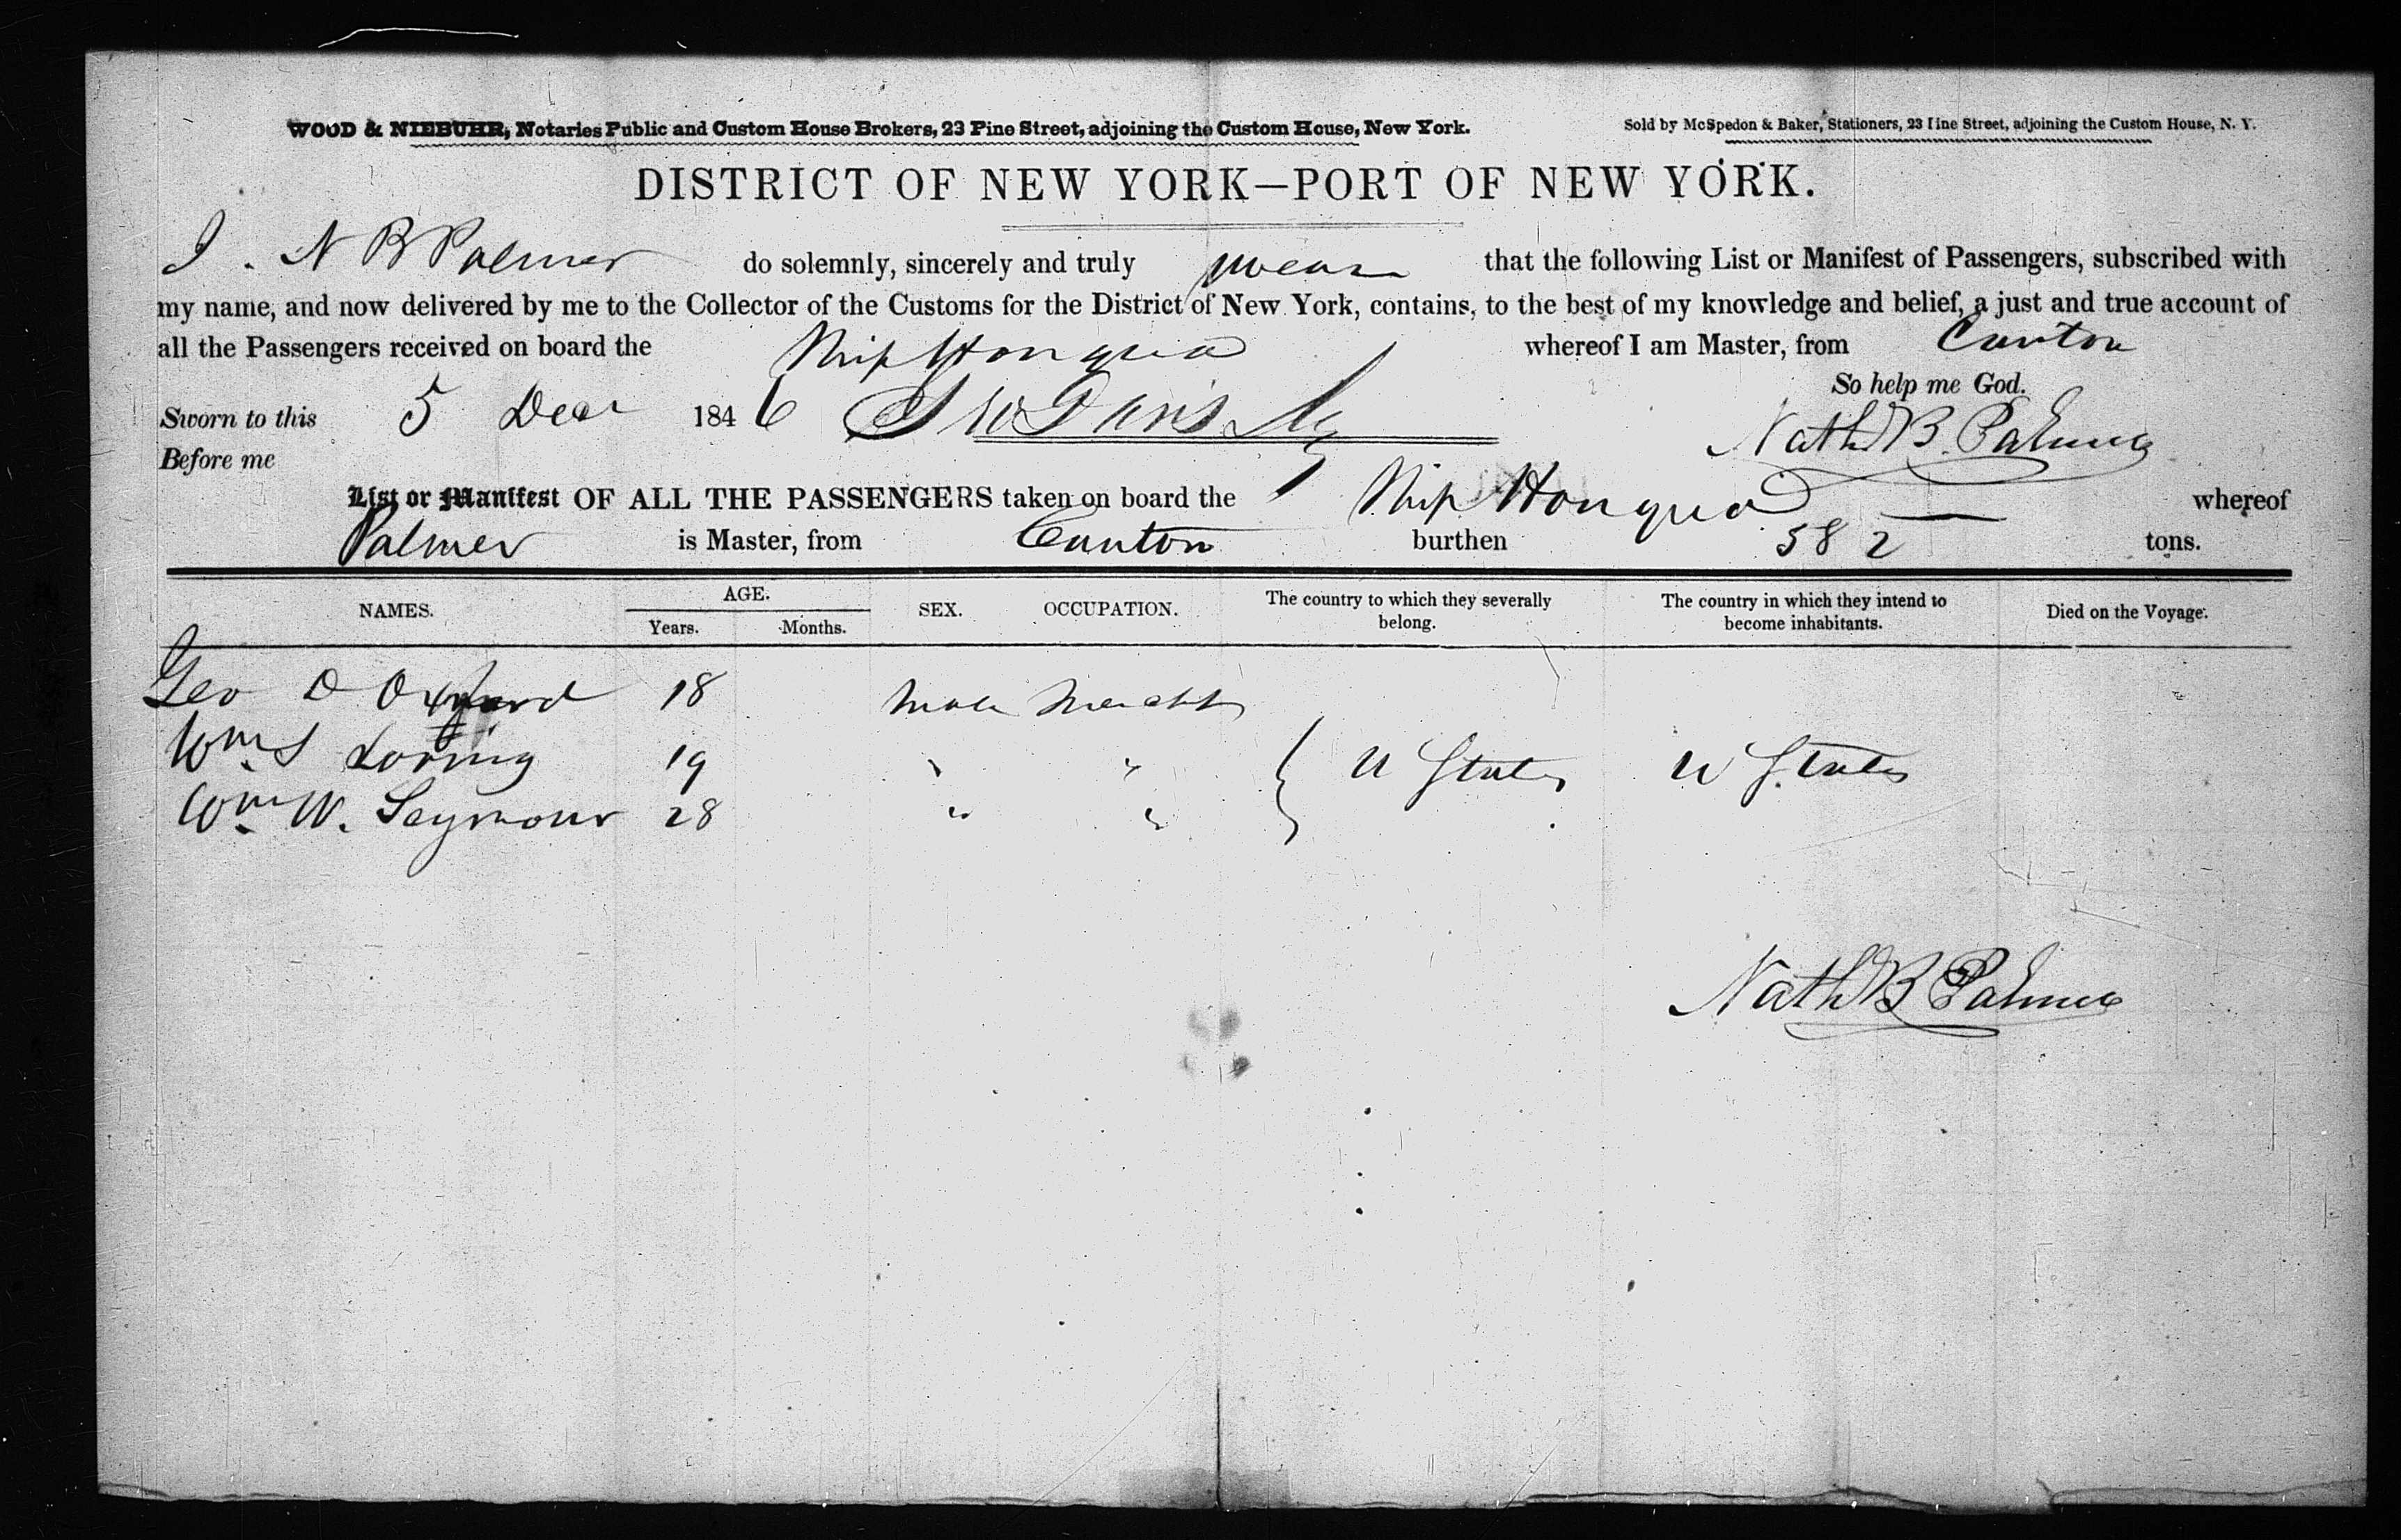 WOOD & NIEBUHR, Notaries Public and Custom House Brokers, 23 Pine Street, adjoining the Custom House, New York.
Sold by McSpedon & Baker, Stationers, 23 Pine Street, adjoining the Custom House, N. Y.
DISTRICT OF NEW YORK—PORT OF NEW YORK.
I. N B Palmer do solemnly, sincerely and truly swear that the following List or Manifest of Passengers, subscribed with
my name, and now delivered by me to the Collector of the Customs for the District of New York, contains, to the best of my knowledge and belief, a just and true account of
all the Passengers received on board the Ship Honqua whereof I am Master, from Canton
So help me God.
Sworn to this 5 Decr 1846
Before me
Nathl B. Palmer
List or Manifest OF ALL THE PASSENGERS taken on board the Ship Honqua whereof
Palmer is Master, from Canton burthen 582 tons.
NAMES. AGE. SEX. OCCUPATION. The country to which they severally belong. The country in which they intend to become inhabitants. Died on the Voyage.
Years. Months.
Geo D 18 Male Merchts
Wm S Loring 19 " " U States U States
Wm W. Seymour 28 " "
Nathl B Palmer